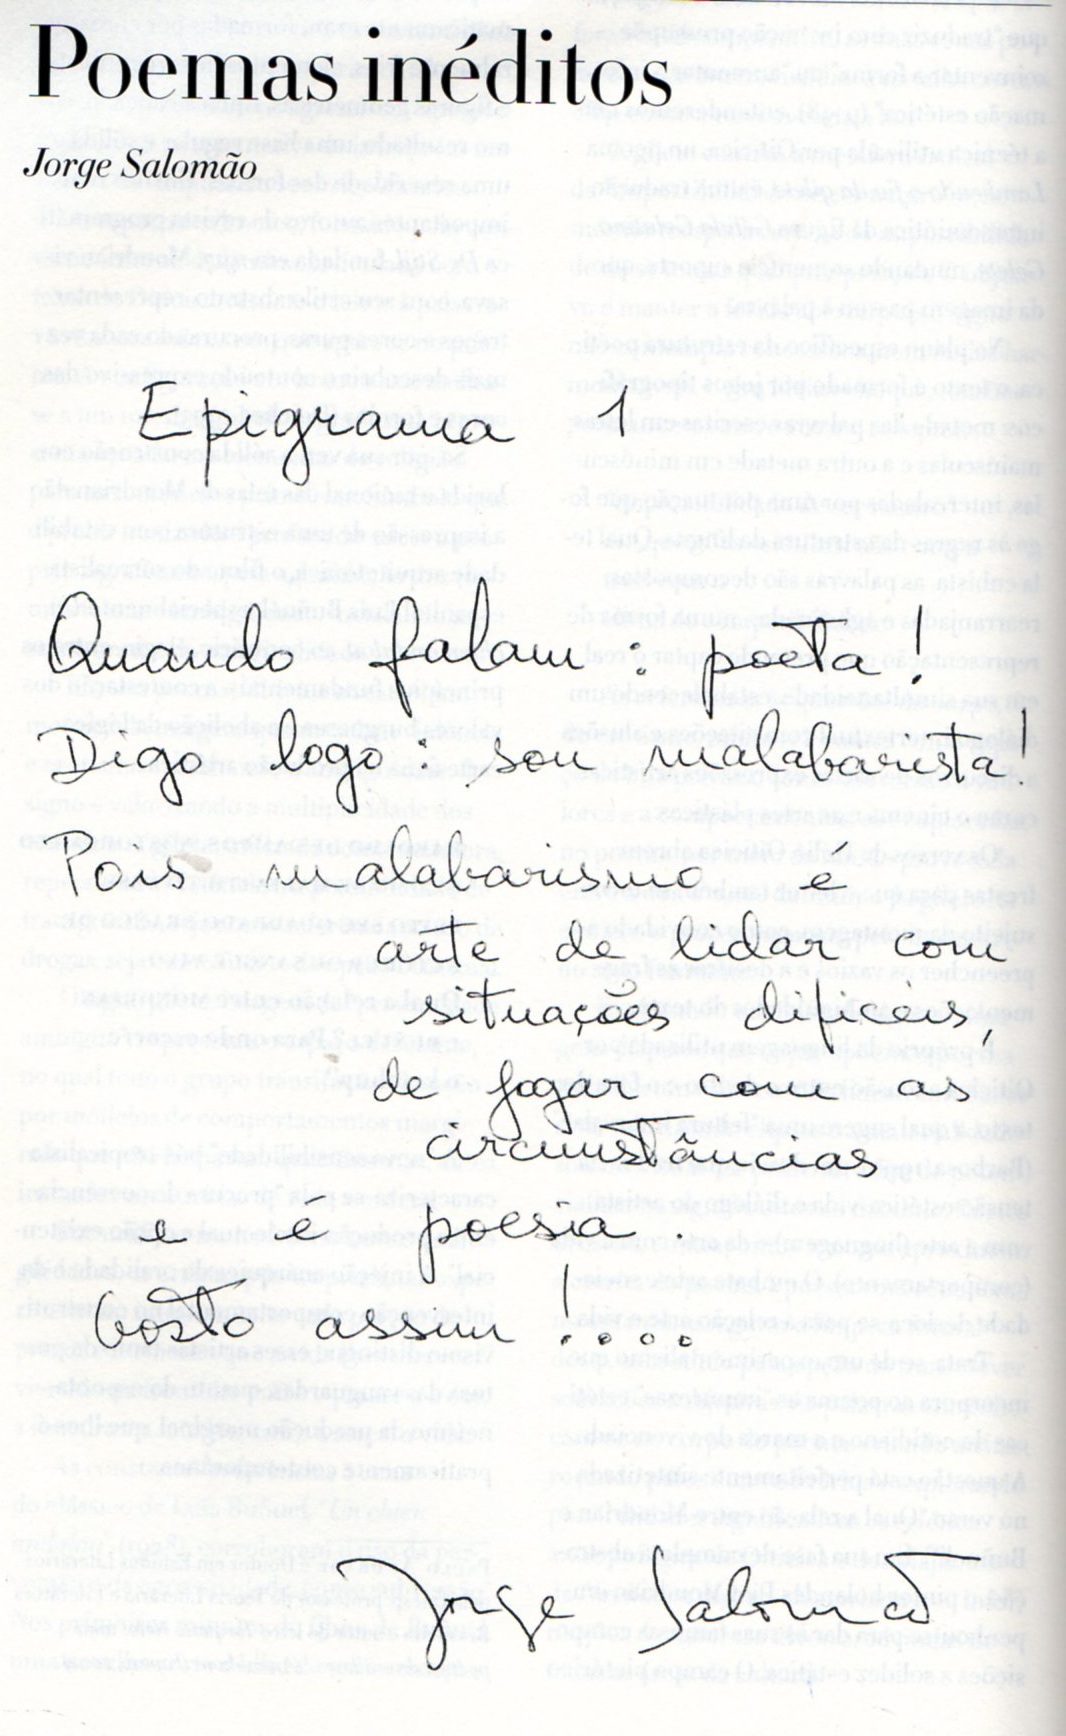 Poemas inéditos
Jorge Salomão
Epigrama 1
Quando falam : poeta !
Digo logo : sou malabarista !
Pois malabarismo é
arte de lidar com
situações difíceis,
de jogar com as
circunstâncias
e é poesia.
Gosto assim !....
Jorge Salomão